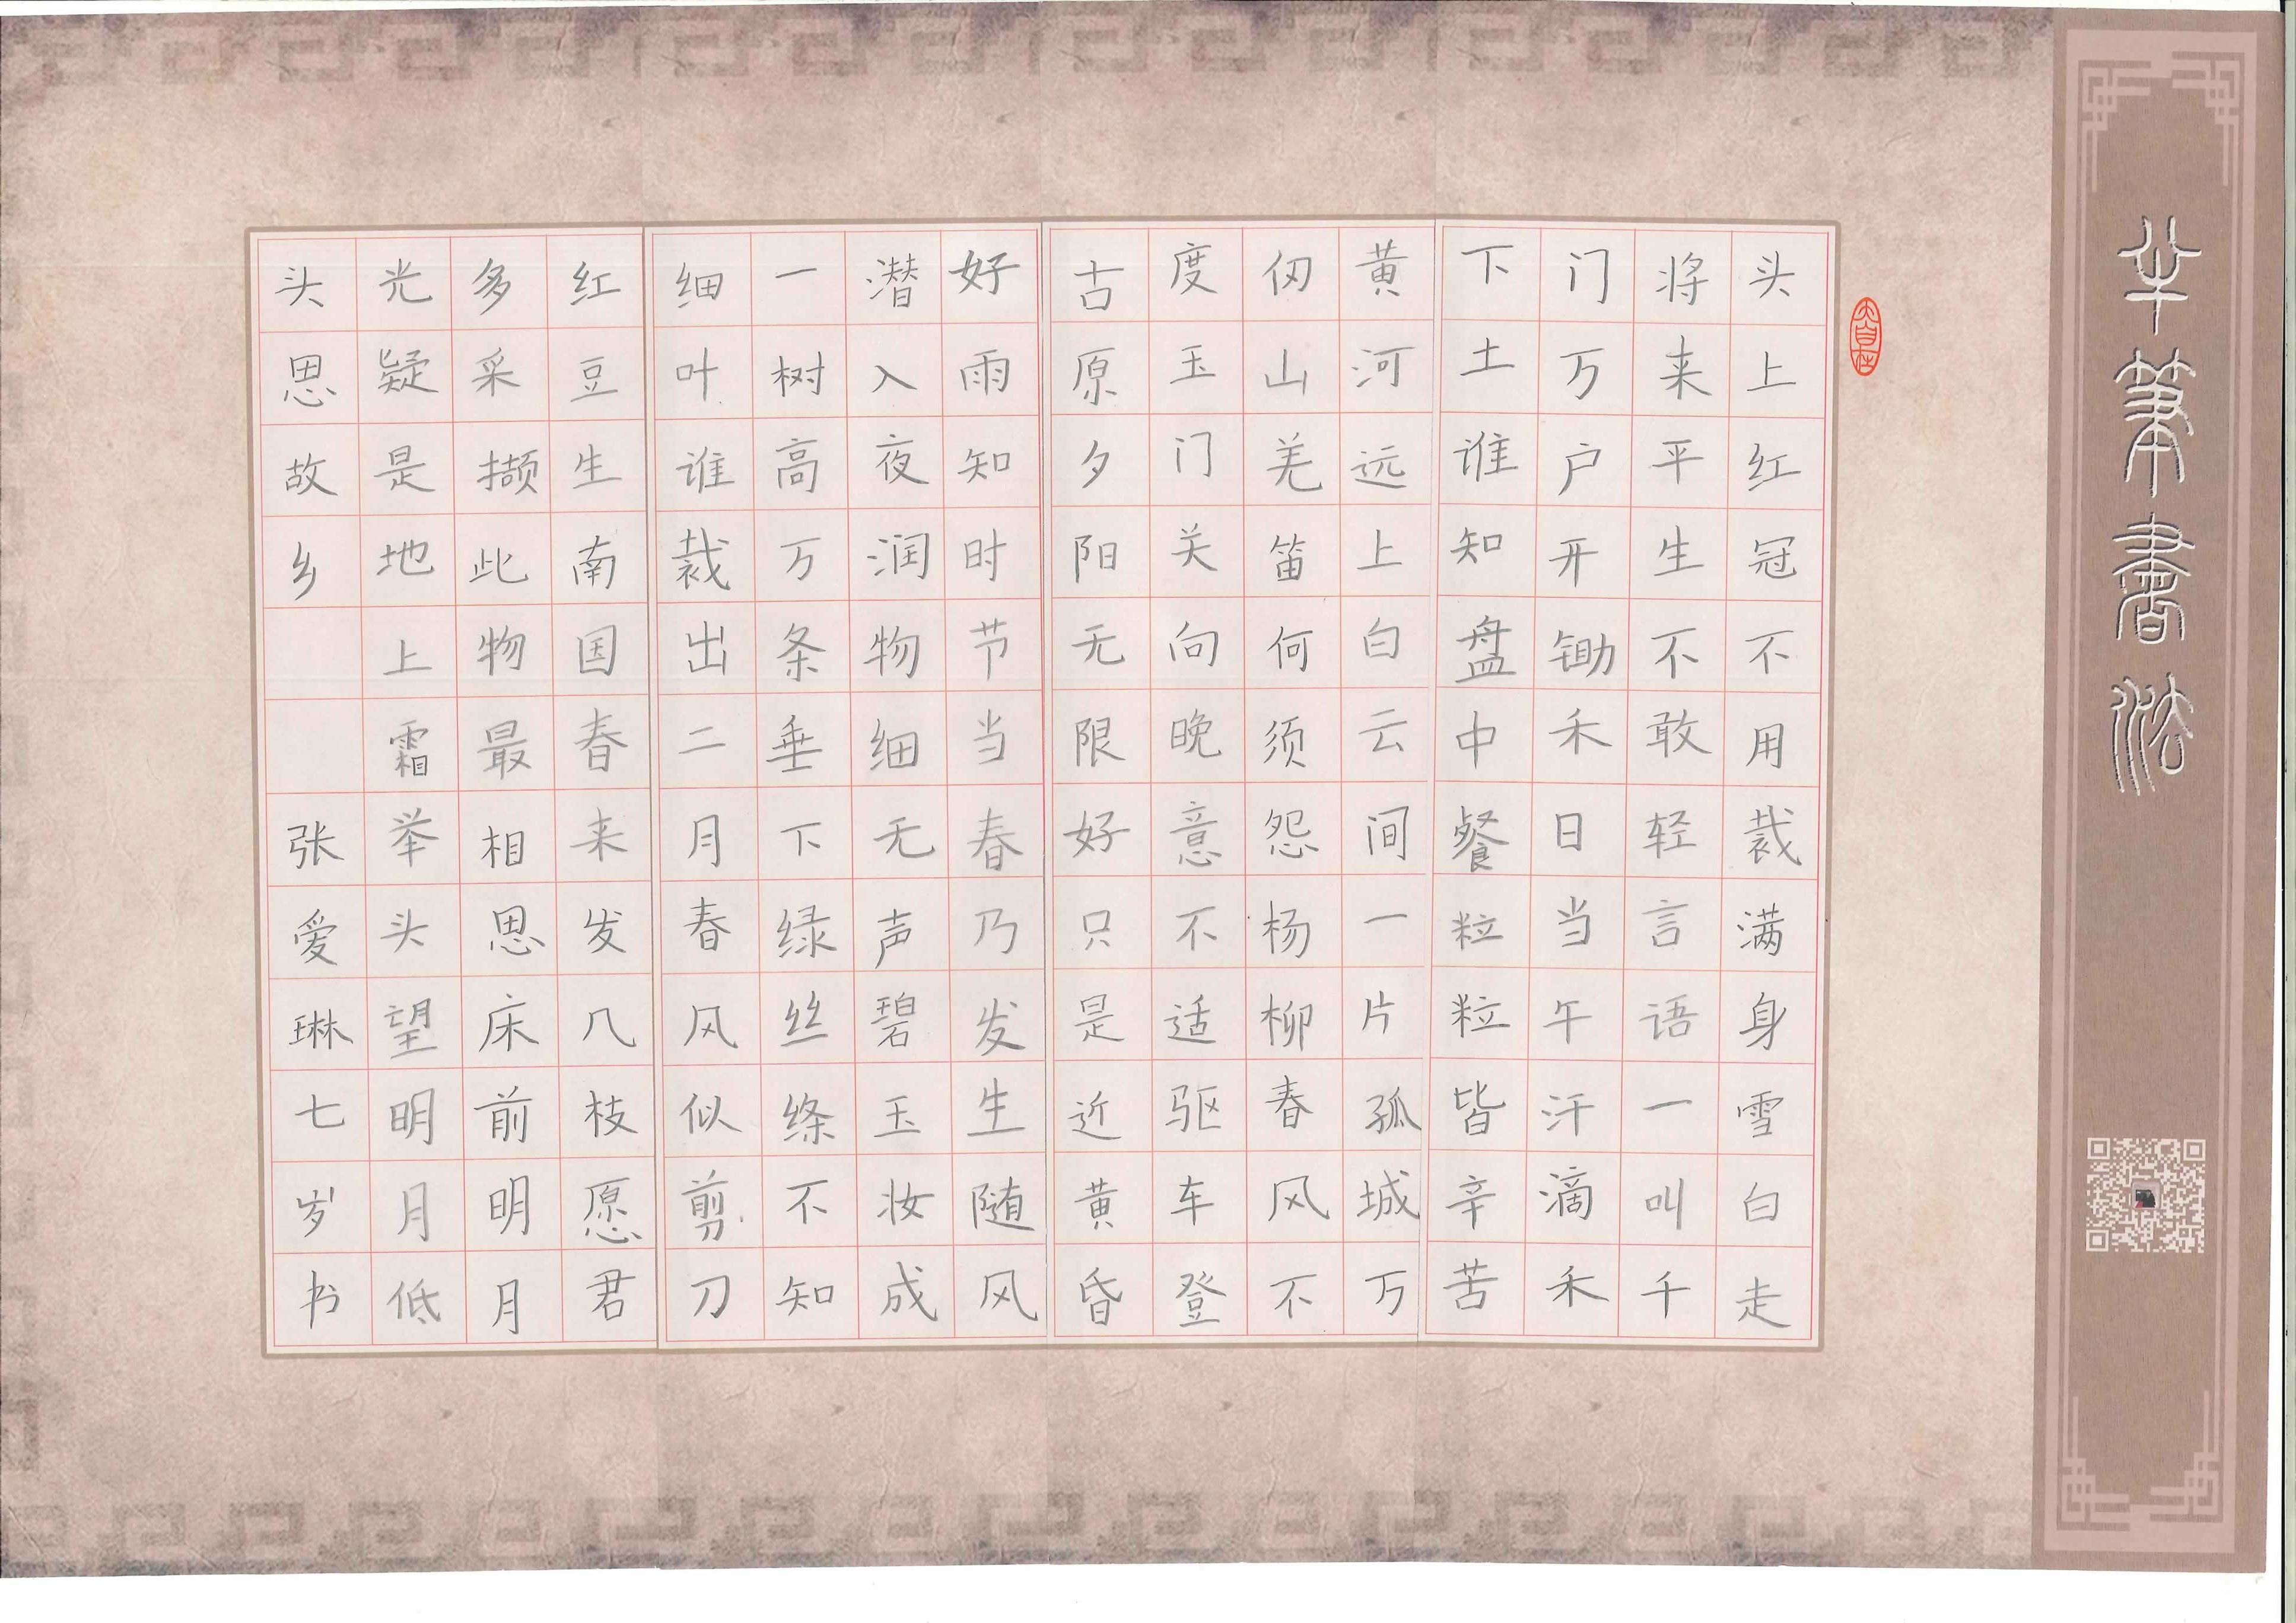 芈笔書法
头上红冠不用裁满身雪白走
将来平生不敢轻言语一叫千
门万户开锄禾日当午汗滴禾
下土谁知盘中餐粒粒皆辛苦
黄河远上白云间一片孤城万
仞山羌笛何须怨杨柳春风不
度玉门关向晚意不适驱车登
古原夕阳无限好只是近黄昏
好雨知时节当春乃发生随风
潜入夜润物细无声碧玉妆成
一树高万条垂下绿丝绦不知
细叶谁裁出二月春风似剪刀
红豆生南国春来发几枝愿君
多采撷此物最相思床前明月
光疑是地上霜举头望明月低
头思故乡 张爱琳七岁书